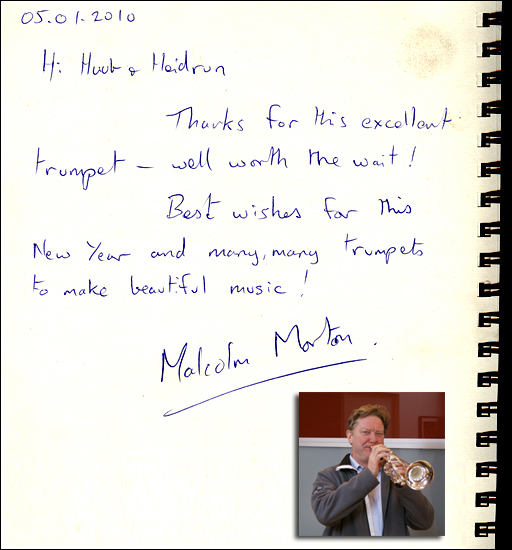 05.01.2010
Hi Hub & Heidrun
Thanks for this excellent
trumpet – well worth the wait!
Best wishes for this
New Year and many, many trumpets
to make beautiful music!
Malcolm Morton.